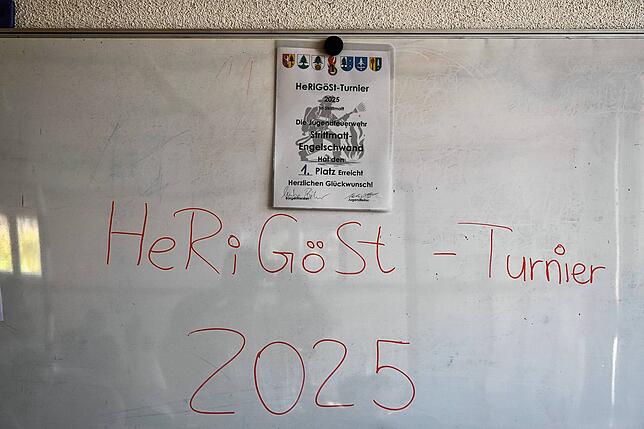 HeRiGöSt-Turnier
2025
in Strittmatt
Die Jugendfeuerwehr
Strittmatt-
Engelschwand
Hat den
1. Platz Erreicht
Herzlichen Glückwunsch!
Bürgermeister Jugendleiter
HeRiGöSt - Turnier
2025